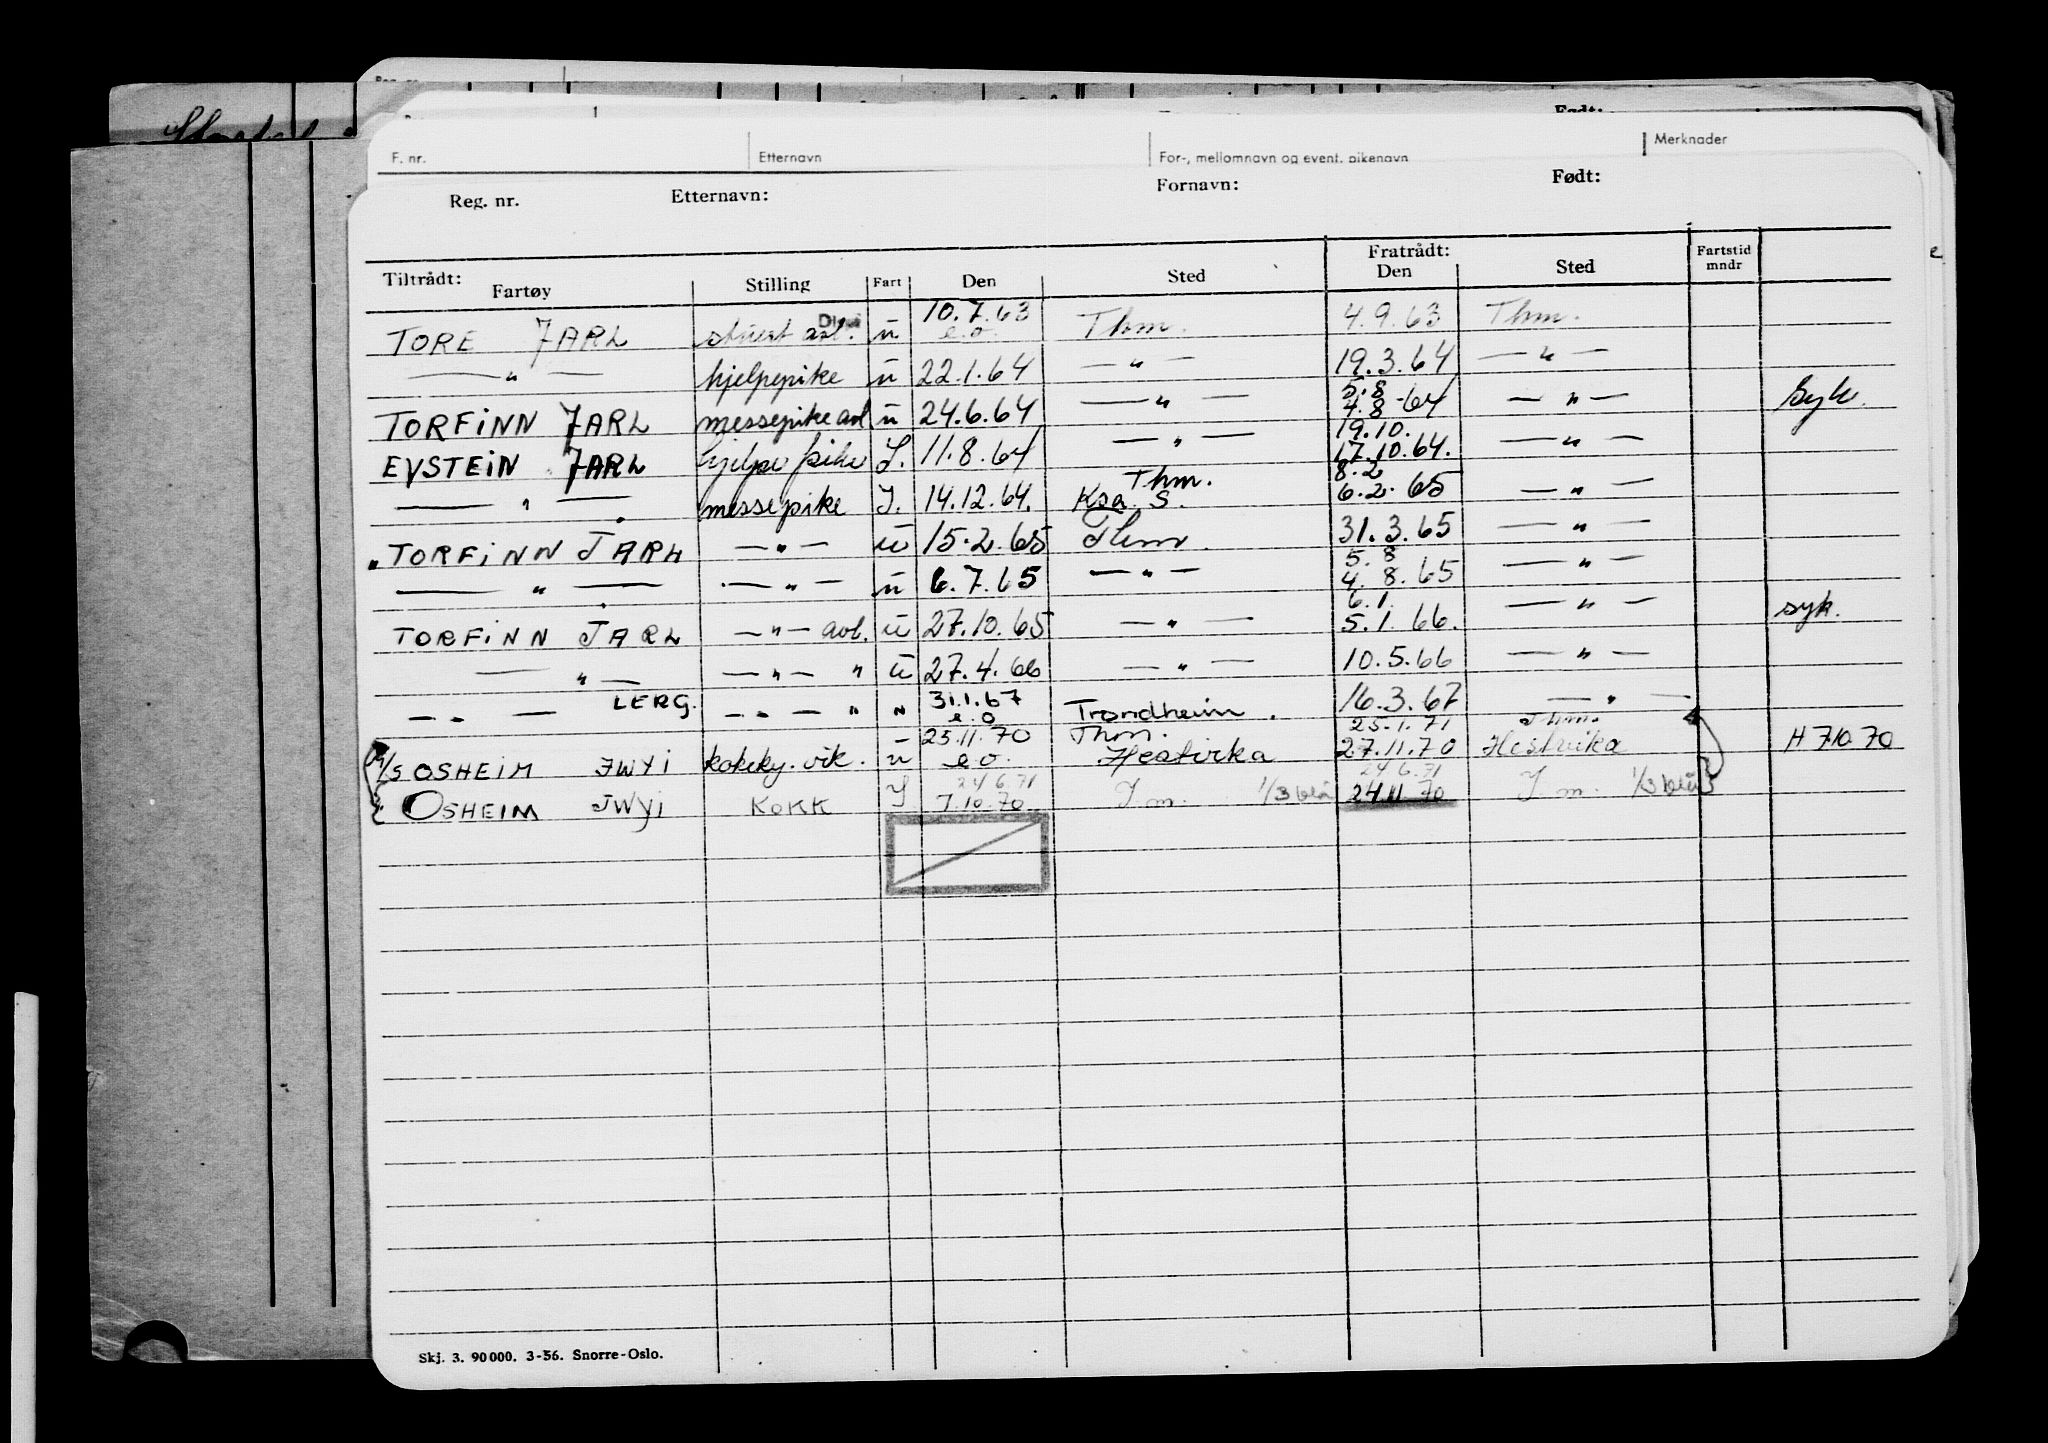 F. nr. Etternavn For-, mellomnavn og event. pikenavn Merknader
Reg. nr. Etternavn: Fornavn: Født:
Tiltrådt: Fratrådt:
Fartøy Stilling Fart Den Sted Den Sted Fartstid mndr
10.7.63
TORE JARL avl. u e.o. Thm. 4.9.63 Thm.
— " — hjelpepike u 22.1.64 — " — 19.3.64 — " —
5.8
TORFINN JARL messepike avl u 24.6.64 — " — 4.8.64 — " — Syk.
19.10.
EYSTEIN JARL hjelpe pike I. 11.8.64 — " — 17.10.64. — " —
Thm. 8.2
— " — messepike I. 14.12.64. Ksa. S. 6.2.65 — " —
" TORFINN JARL — " — u 15.2.65 Thm. 31.3.65 — " —
5.8
— " — — " — u 6.7.65 — " — 4.8.65 — " —
6.1.
TORFINN JARL — " — avl. u 27.10.65 — " — 5.1.66. — " — syk.
— " — — " — " u 27.4.66 — " — 10.5.66 — " —
LERG. 31.1.67
— " — — " — " " e.o Trondheim. 16.3.67 — " —
25.11.70 Thm. 25.1.71 Thm.
M/S OSHEIM JWYI kokeky. vik. u e.o. Hestvika 27.11.70 Hestvika H 7.10.70
24.6.71 24.6.71
OSHEIM JWYI KOKK I 7.10.70 I.m. 1/3 blå 24.11.70 I.m. 1/3 blå
Skj. 3. 90 000. 3-56. Snorre-Oslo.